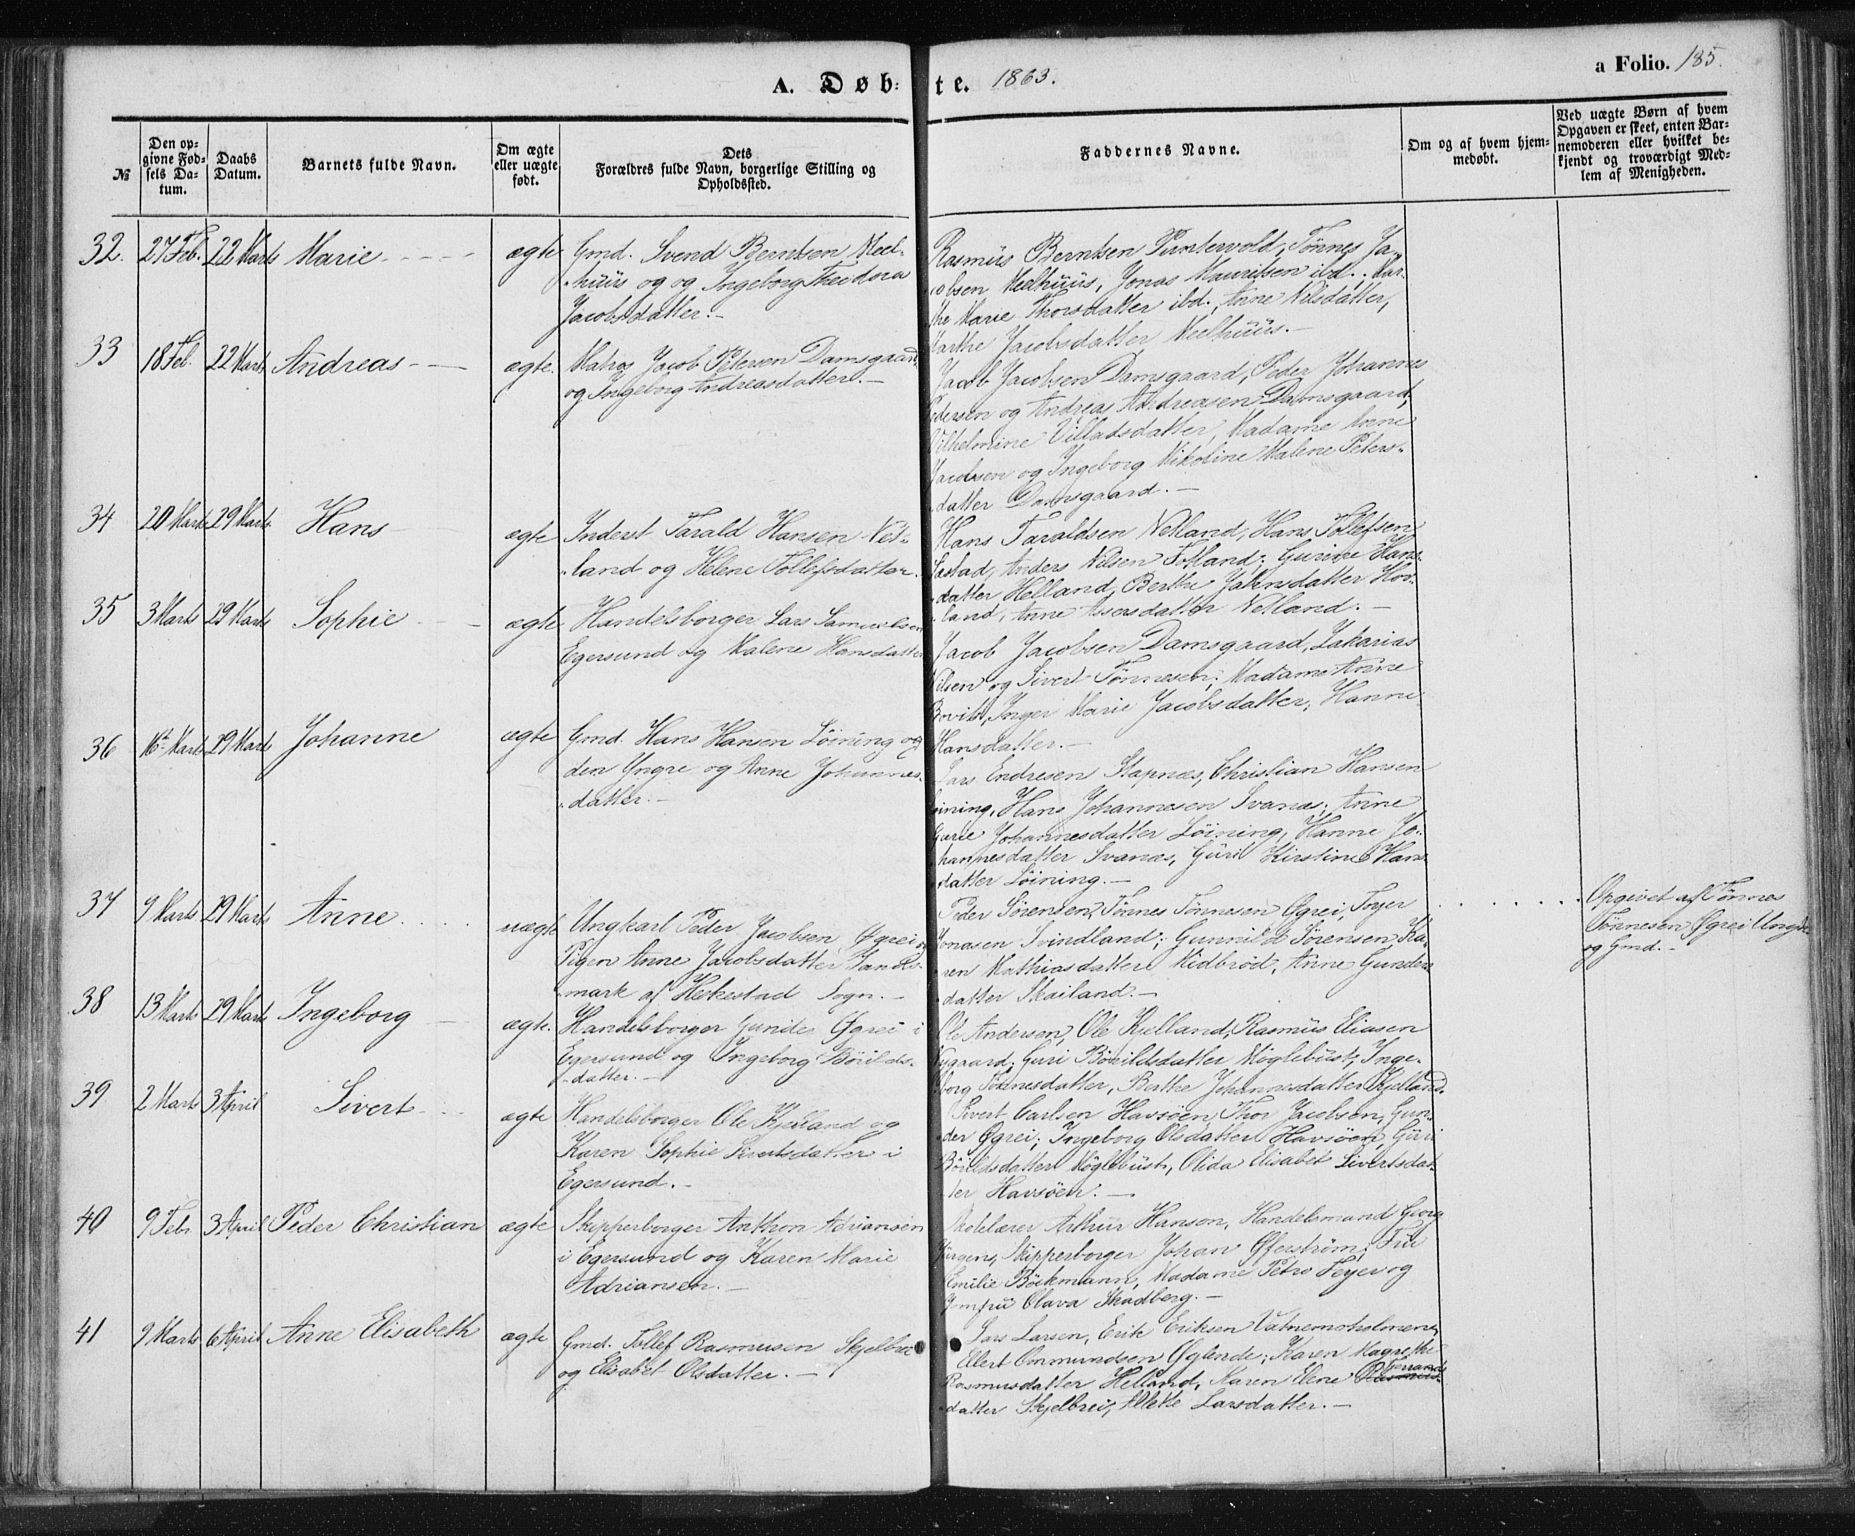 A. Døb-
te. 1863.
a Folio. 185.
№
Den op-
givne Fød-
sels Da-
tum.
Daabs
Datum.
Barnets fulde Navn.
Om ægte
eller uægte
født.
Dets
Forældres fulde Navn, borgerlige Stilling og
Opholdssted.
Faddernes Navne.
Om og af hvem hjem-
medøbt.
Ved uægte Børn af hvem
Opgaven er skeet, enten Bar-
nemoderen eller hvilket be-
kjendt og troværdigt Med-
lem af Menigheden.
32. 27 Feb. 22 Marts Marie ægte Gmd. Svend Berntsen Meel-
huus og og Ingeborg Theodora
Jacobsdatter.
Rasmus Berntsen Puntervold, Tønnes Ja-
cobsen Meelhuus, Jonas Mauritsen ibd., Mar-
the Marie Thorsdatter ibd., Anne Nilsdatter,
Marthe Jacobsdatter Meelhuus.
33 18 Feb. 22 Marts Andreas ægte. Matros Jacob Petersen Damsgaard,
og Ingeborg Andreasdatter.
Jacob Jacobsen Damsgaard, Peder Johannes
Pedersen og Andreas Andreasen Damsgaard,
Vilhelmine Villadsdatter, Madame Anne
Jacobsen og Ingeborg Nikoline Malene Peters-
datter Damsgaard.
34 20 Marts 29 Marts Hans ægte Inderst Tarald Hansen Net-
land og Helene Tollefsdatter.
Hans Taraldsen Netland, Hans Tollefsen
Anders Nilsen Fotland; Gurine Hans-
datter Helland, Berthe Hov-
land, Anne Assersdatter Netland.
35 3 Marts 29 Marts Sophie ægte Handelsborger Lars Samuelsen
Egersund og Malene Hansdatter
Jacob Jacobsen Damsgaard, Zakarias
Nilsen og Sivert Tønnesen; Madame Anne
Inger Marie Jacobsdatter, Hanne
Hansdatter.
36 16 Marts 29 Marts Johanne ægte Gmd. Hans Hansen Løining og
den Yngre og Anne Johannes-
datter.
Lars Endresen Stapnæs, Christian Hansen
Løining, Hans Johannesen Svanæs; Anne
Garie Johannesdatter Løining, Hanne Jo-
hannesdatter Svanæs, Guri Kirstine Hans-
datter Løining.
37 9 Marts 29 Marts Anne uægte Ungkarl Peder Jacobsen Øgrei og
Pigen Anne Jacobsdatter
mark af Hekestad Sogn.
Peder Sørensen, Tønnes Tønnesen Øgrei, Inger
Jonasen Svindland; Gunnild Sørensen Ka-
ren Mathiasdatter Midbrød, Anne Gunders-
datter Skailand.
Opgivet af Tønnes
Tønnesen Øgrei
og Gmd.
38 13 Marts 29 Marts Ingeborg ægte. Handelsborger Gunder Øgrei i
Egersund og Ingeborg Bøilds-
datter.
Ole Andersen, Ole Kjelland, Rasmus Eliasen
Nygaard; Guri Bøvildsdatter Møglebust, Inge-
borg Tønnesdatter, Berthe Johannesdatter Kjelland.
39 2 Marts 3 April Sivert ægte Handelsborger Ole Kjelland og
Karen Sophie Sivertsdatter i
Egersund.
Sivert Carlsen Havsøen, Thor Jacobsen, Gun-
der Øgrei; Ingeborg Olsdatter Havsøen, Guri
Bøildsdatter Møglebust, Olida Elisabet Sivertsdat-
ter Havsøen.
40 9 Febr 3 April Peder Christian ægte Skipperborger Anthon Adriansen
i Egersund og Karen Marie
Adriansen.
Skolelærer Arthur Hanson, Handelsmand Georg
Jürgens, Skipperborger Johan Øferstrøm; Fru
Emilie Böckmann, Madame Petro Feyer og
Jomfru Olava Skadberg.
41 9 Marts 6 April Anne Elisabeth ægte Gmd. Tollef Rasmusen Skjelbrei
og Elisabet Olsdatter.
Lars Larsen, Erik Eriksen Vatnemoholmene,
Elert Ommundsen Øglende; Karen Magrethe
Rasmusdatter Helland, Karen Elene Rasmus- Torrands
datter Skjelbrei, Mette Larsdatter.